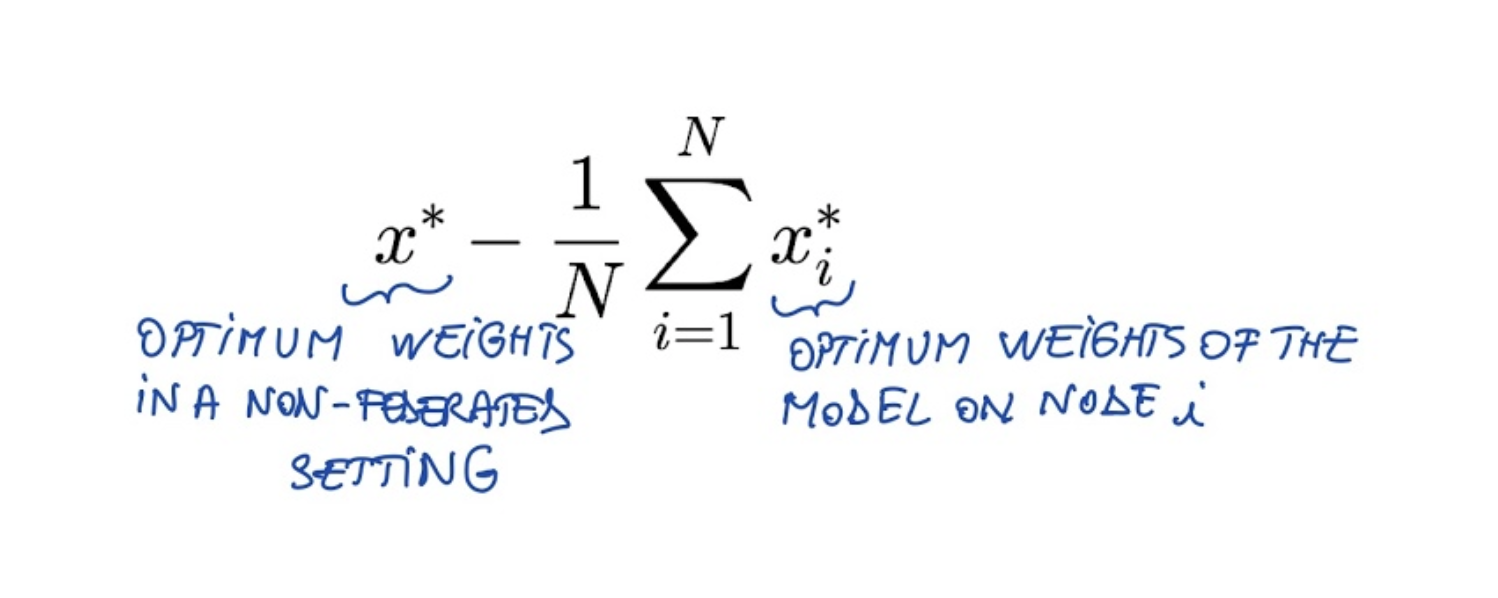 x* − 1/N ∑_{i=1}^{N} x_i*
OPTIMUM WEIGHTS
IN A NON-FEDERATED
SETTING
OPTIMUM WEIGHTS OF THE
MODEL ON NODE i